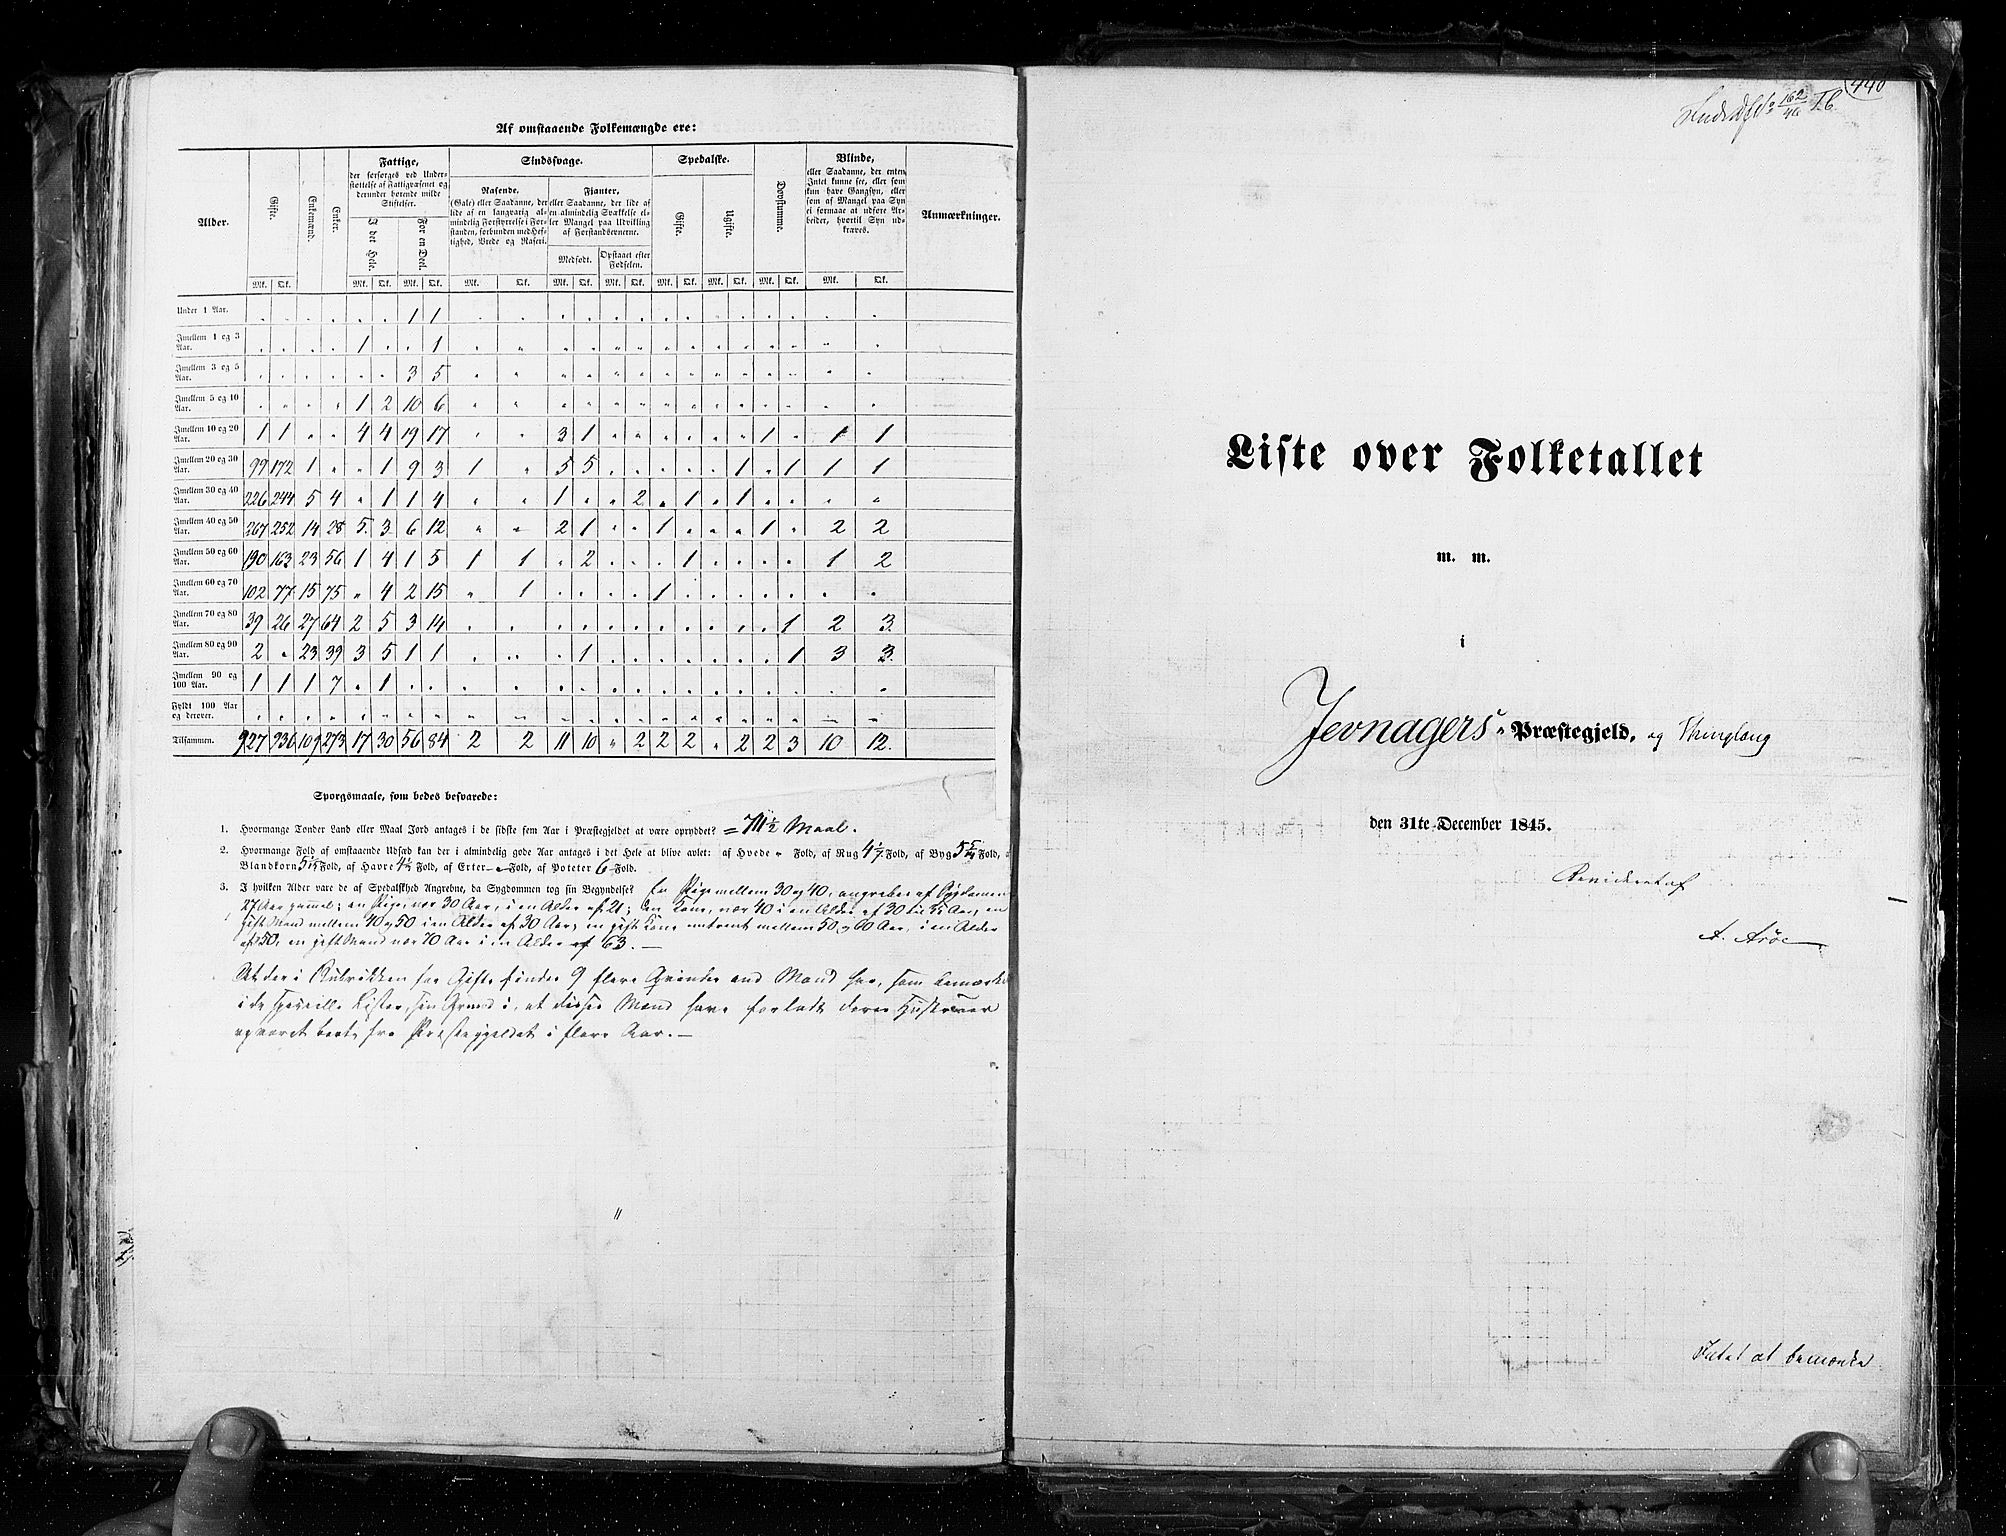 Af omstaaende Folkemængde ere:
Alder. Gifte. Enkemænd. Enker. Fattige, Sindssvage. Spedalske. Døvstumme. Blinde, Anmærkninger.
der forsørges ved Under-
støttelse af Fattigvæsenet og
derunder hørende milde
Stiftelser.
I det Hele. For en Deel.
Rasende.
(Gale) eller Saadanne, der
lide af en langvarig al-
mindelig Forstyrrelse i For-
standen, forbunden med Hef-
tighed, Vrede og Raseri.
Fjanter,
eller Saadanne, der lide af
en almindelig Svækkelse el-
ler Mangel paa Udvikling
af Forstandsevnerne.
Medfødt. Opstaaet efter Fødselen.
Gifte. Ugifte.
eller Saadanne, der enten
Intet kunne see, eller som
kun have Gangsyn, eller
som af Mangel paa Syn
ei formaae at udføre Ar-
beider, hvortil Syn ud-
kræves.
Mk. Qk. Mk. Qk. Mk. Qk. Mk. Qk. Mk. Qk. Mk. Qk. Mk. Qk. Mk. Qk. Mk. Qk. Mk. Qk.
Under 1 Aar. . . . . . . 1 1 . . . . . . . . . . . . . .
Imellem 1 og 3 Aar. . . . . 1 . . 1 . . . . . . . . . . . . . .
Imellem 3 og 5 Aar. . . . . . . 3 5 . . . . . . . . . . . . . .
Imellem 5 og 10 Aar. . . . . 1 2 10 6 . . . . . . . . . . . . . .
Imellem 10 og 20 Aar. 1 1 . . 4 4 19 17 . . 3 1 . . . . . . 1 . 1 1
Imellem 20 og 30 Aar. 99 172 1 . . 1 9 3 1 . 5 5 . . . . . 1 . 1 1 1
Imellem 30 og 40 Aar. 226 244 5 4 . 1 1 4 . . 1 . . 2 . 1 . 1 . . . .
Imellem 40 og 50 Aar. 267 252 14 28 5 3 6 12 . . 2 1 . . 1 . . . 1 . 2 2
Imellem 50 og 60 Aar. 190 163 23 56 1 4 1 5 1 1 . 2 . . . 1 . . . . 1 2
Imellem 60 og 70 Aar. 102 77 15 75 . 4 2 15 . 1 . . . . 1 . . . . . . .
Imellem 70 og 80 Aar. 39 26 27 64 2 5 3 14 . . . . . . . . . . . 1 2 3
Imellem 80 og 90 Aar. 2 . 23 39 3 5 1 1 . . . 1 . . . . . . . 1 3 3
Imellem 90 og 100 Aar. 1 1 1 7 . 1 . . . . . . . . . . . . . . . .
Fyldt 100 Aar og derover. . . . . . . . . . . . . . . . . . . . . . .
Tilsammen. 927 936 109 273 17 30 56 84 2 2 11 10 . 2 2 2 . 2 2 3 10 12.
Sporgsmaale, som bedes besvarede:
1. Hvormange Tønder Land eller Maal Jord antages i de sidste fem Aar i Præstegjeldet at være opryddet? = 711½ Maal.
2. Hvormange Fold af omstaaende Udsæd kan der i almindelig gode Aar antages i det Hele at blive avlet: af Hvede " Fold, af Rug 4 1/7 Fold, af Byg 5 Fold,
Blandkorn 5 Fold, af Havre 4½ Fold, af Erter " Fold, af Poteter 6 Fold.
3. I hvilken Alder vare de af Spedalskhed Angrebne, da Sygdommen tog sin Begyndelse? En Pige mellem 30 og 40, angreben af Sygdommen
27 Aar gammel; en Pige, nær 30 Aar, i en Alder af 21; en Kone, nær 40 i en Alder af 30 til Aar, en
gift Mand mellem 40 og 50 i en Alder af 30 Aar; en gift Kone omtrent mellem 50 og 60 Aar, i en Alder
af 50, en gift Mand nær 70 Aar i en Alder af 63. —
At der i Rubrikken for Gifte findes 9 flere Qvinder end Mænd har, som bemærket
i de specielle Lister, sin Grund i, at disse Mænd have forladt deres Hustruer
og været borte fra Præstegjeldet i flere Aar. —
"
440
162/46
Liste over Folketallet
m. m.
i
Jevnagers Præstegjeld, og Thinglaug
den 31te December 1845.
Revideret af
A. Arøe
Intet at bemærke